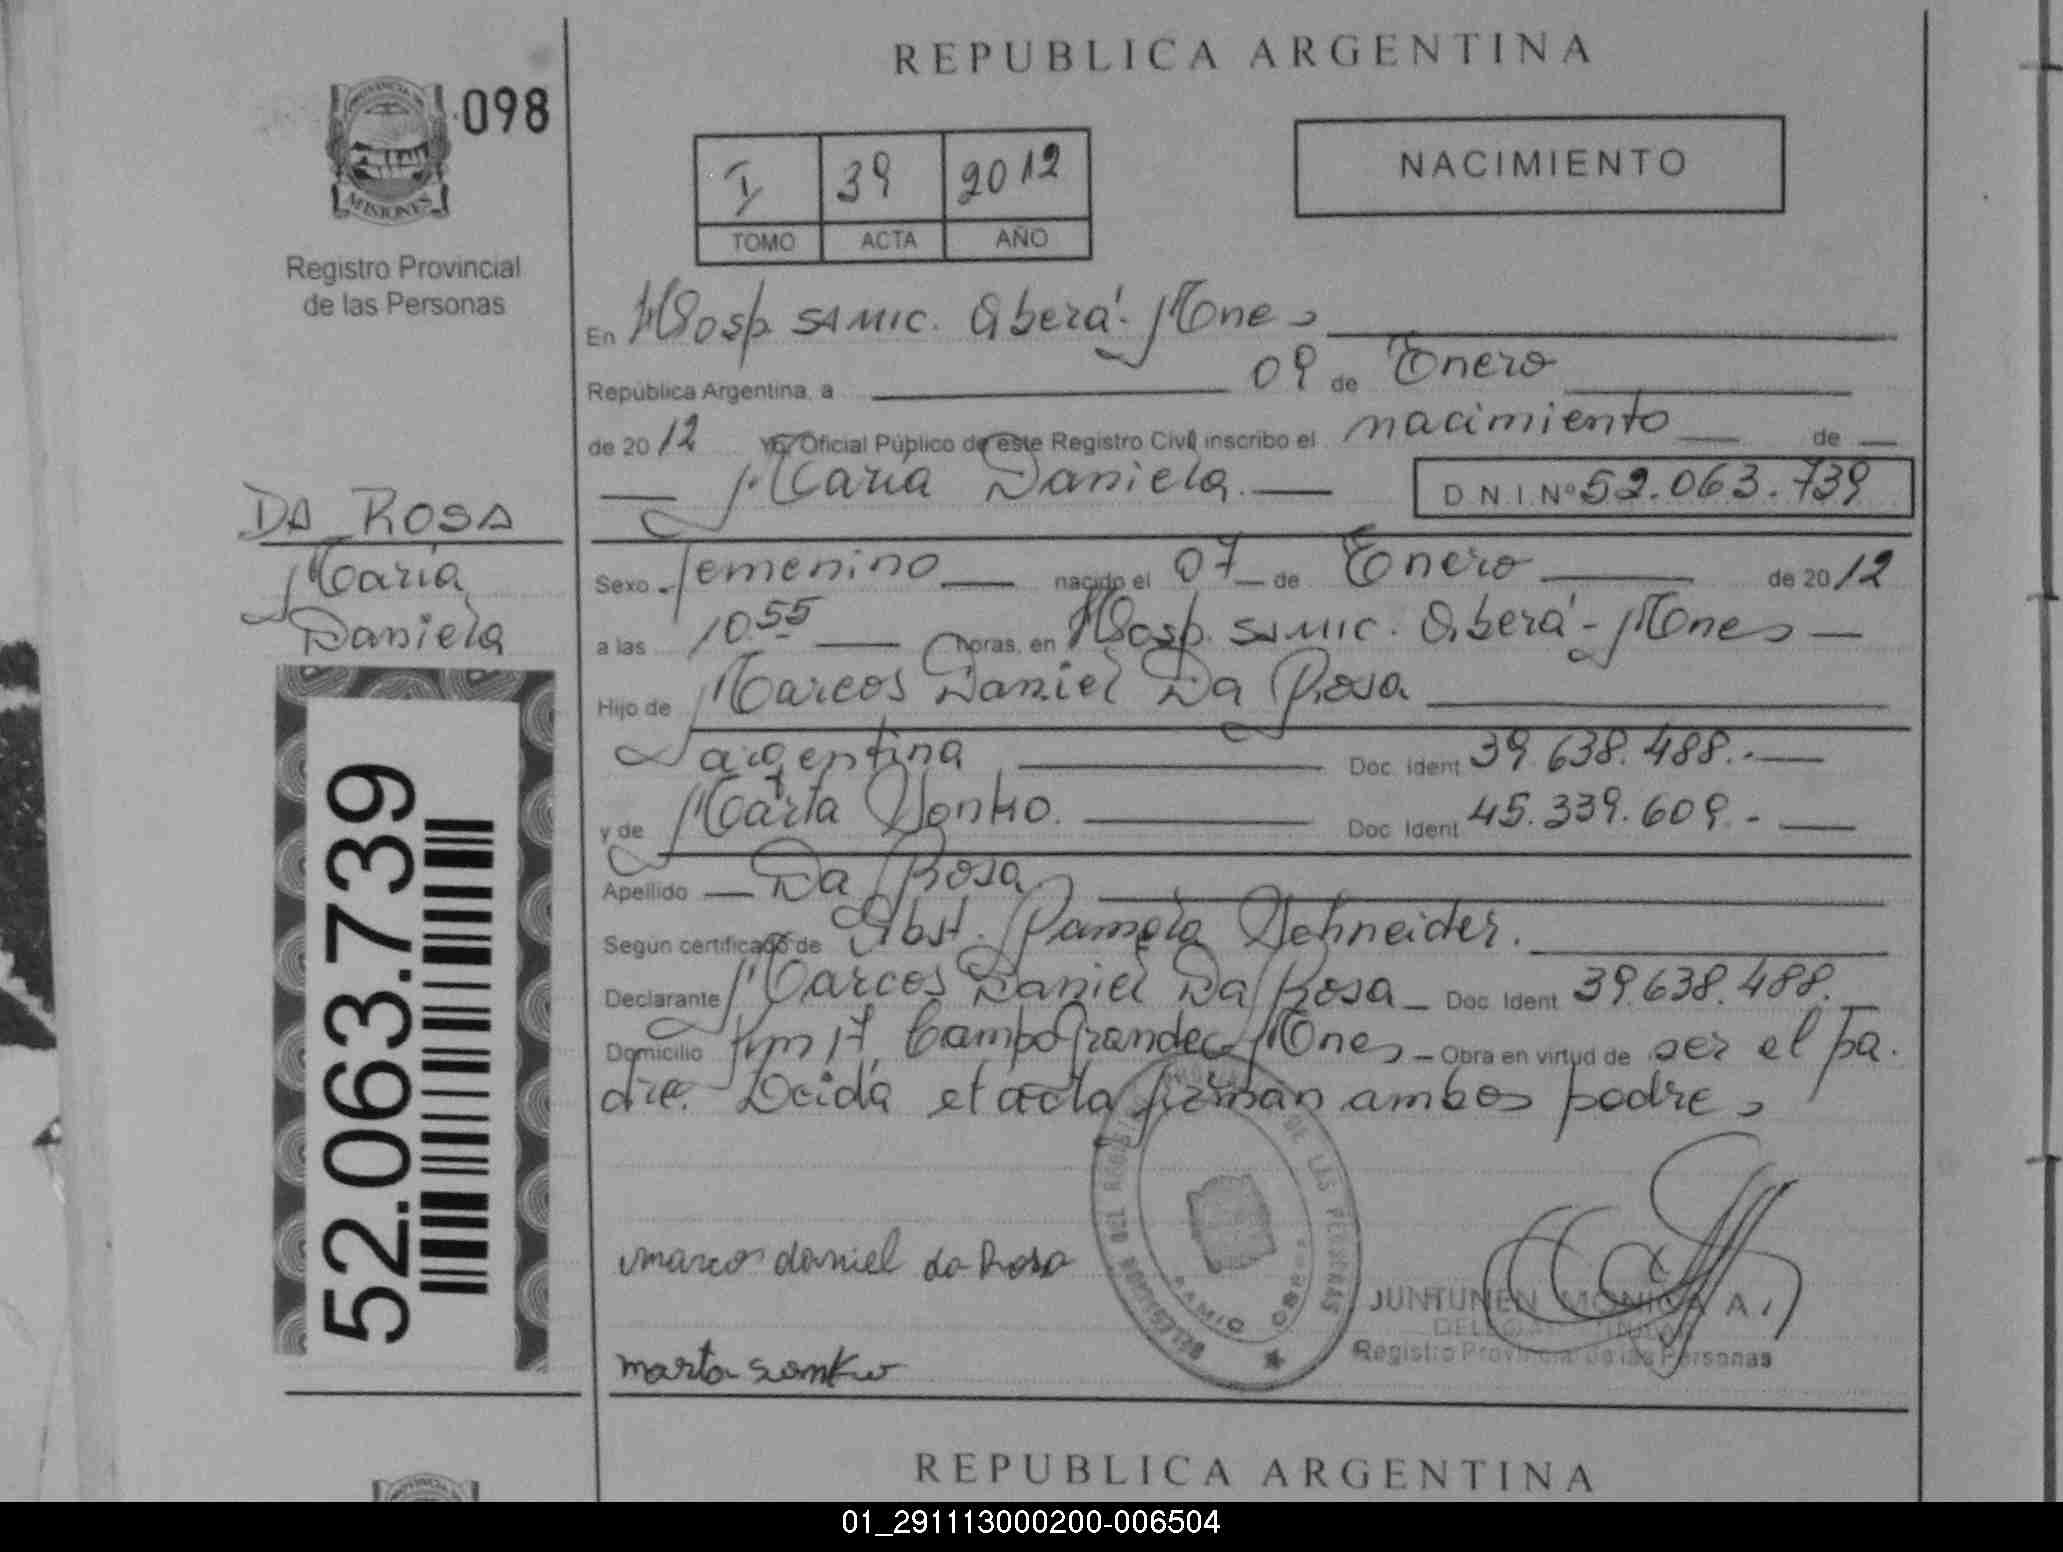 REPUBLICA ARGENTINA
098
PROVINCIA DE
MISIONES
Registro Provincial
de las Personas
NACIMIENTO
I 39 2012
TOMO ACTA AÑO
En Hosp SAMIC. Oberá - Mnes
República Argentina, a 09 de Enero
de 2012 Yo, Oficial Público de este Registro Civil inscribo el nacimiento de
María Daniela. D N I Nº 52.063.739
DA ROSA
María
Daniela
Sexo femenino nacido el 07 de Enero de 2012
a las 10.55 horas, en Hosp. SAMIC. Oberá - Mnes
Hijo de Marcos Daniel Da Rosa
argentina Doc. Ident 39.638.488.-
y de Marta Sonko. Doc. Ident 45.339.609.-
Apellido Da Rosa
Según certificado de Obst. Pamela Schneider.
Declarante Marcos Daniel Da Rosa Doc. Ident 39.638.488.
Domicilio Km 17, Campo Grande Mnes Obra en virtud de ser el pa.
dre. Leída el acta firman ambos padres
52.063.739
marcos daniel da Rosa
marta sonko
DE LAS PERSONAS
JUNTUNEN MONICA A.
Registro Provincial de las Personas
REPUBLICA ARGENTINA
01_291113000200-006504